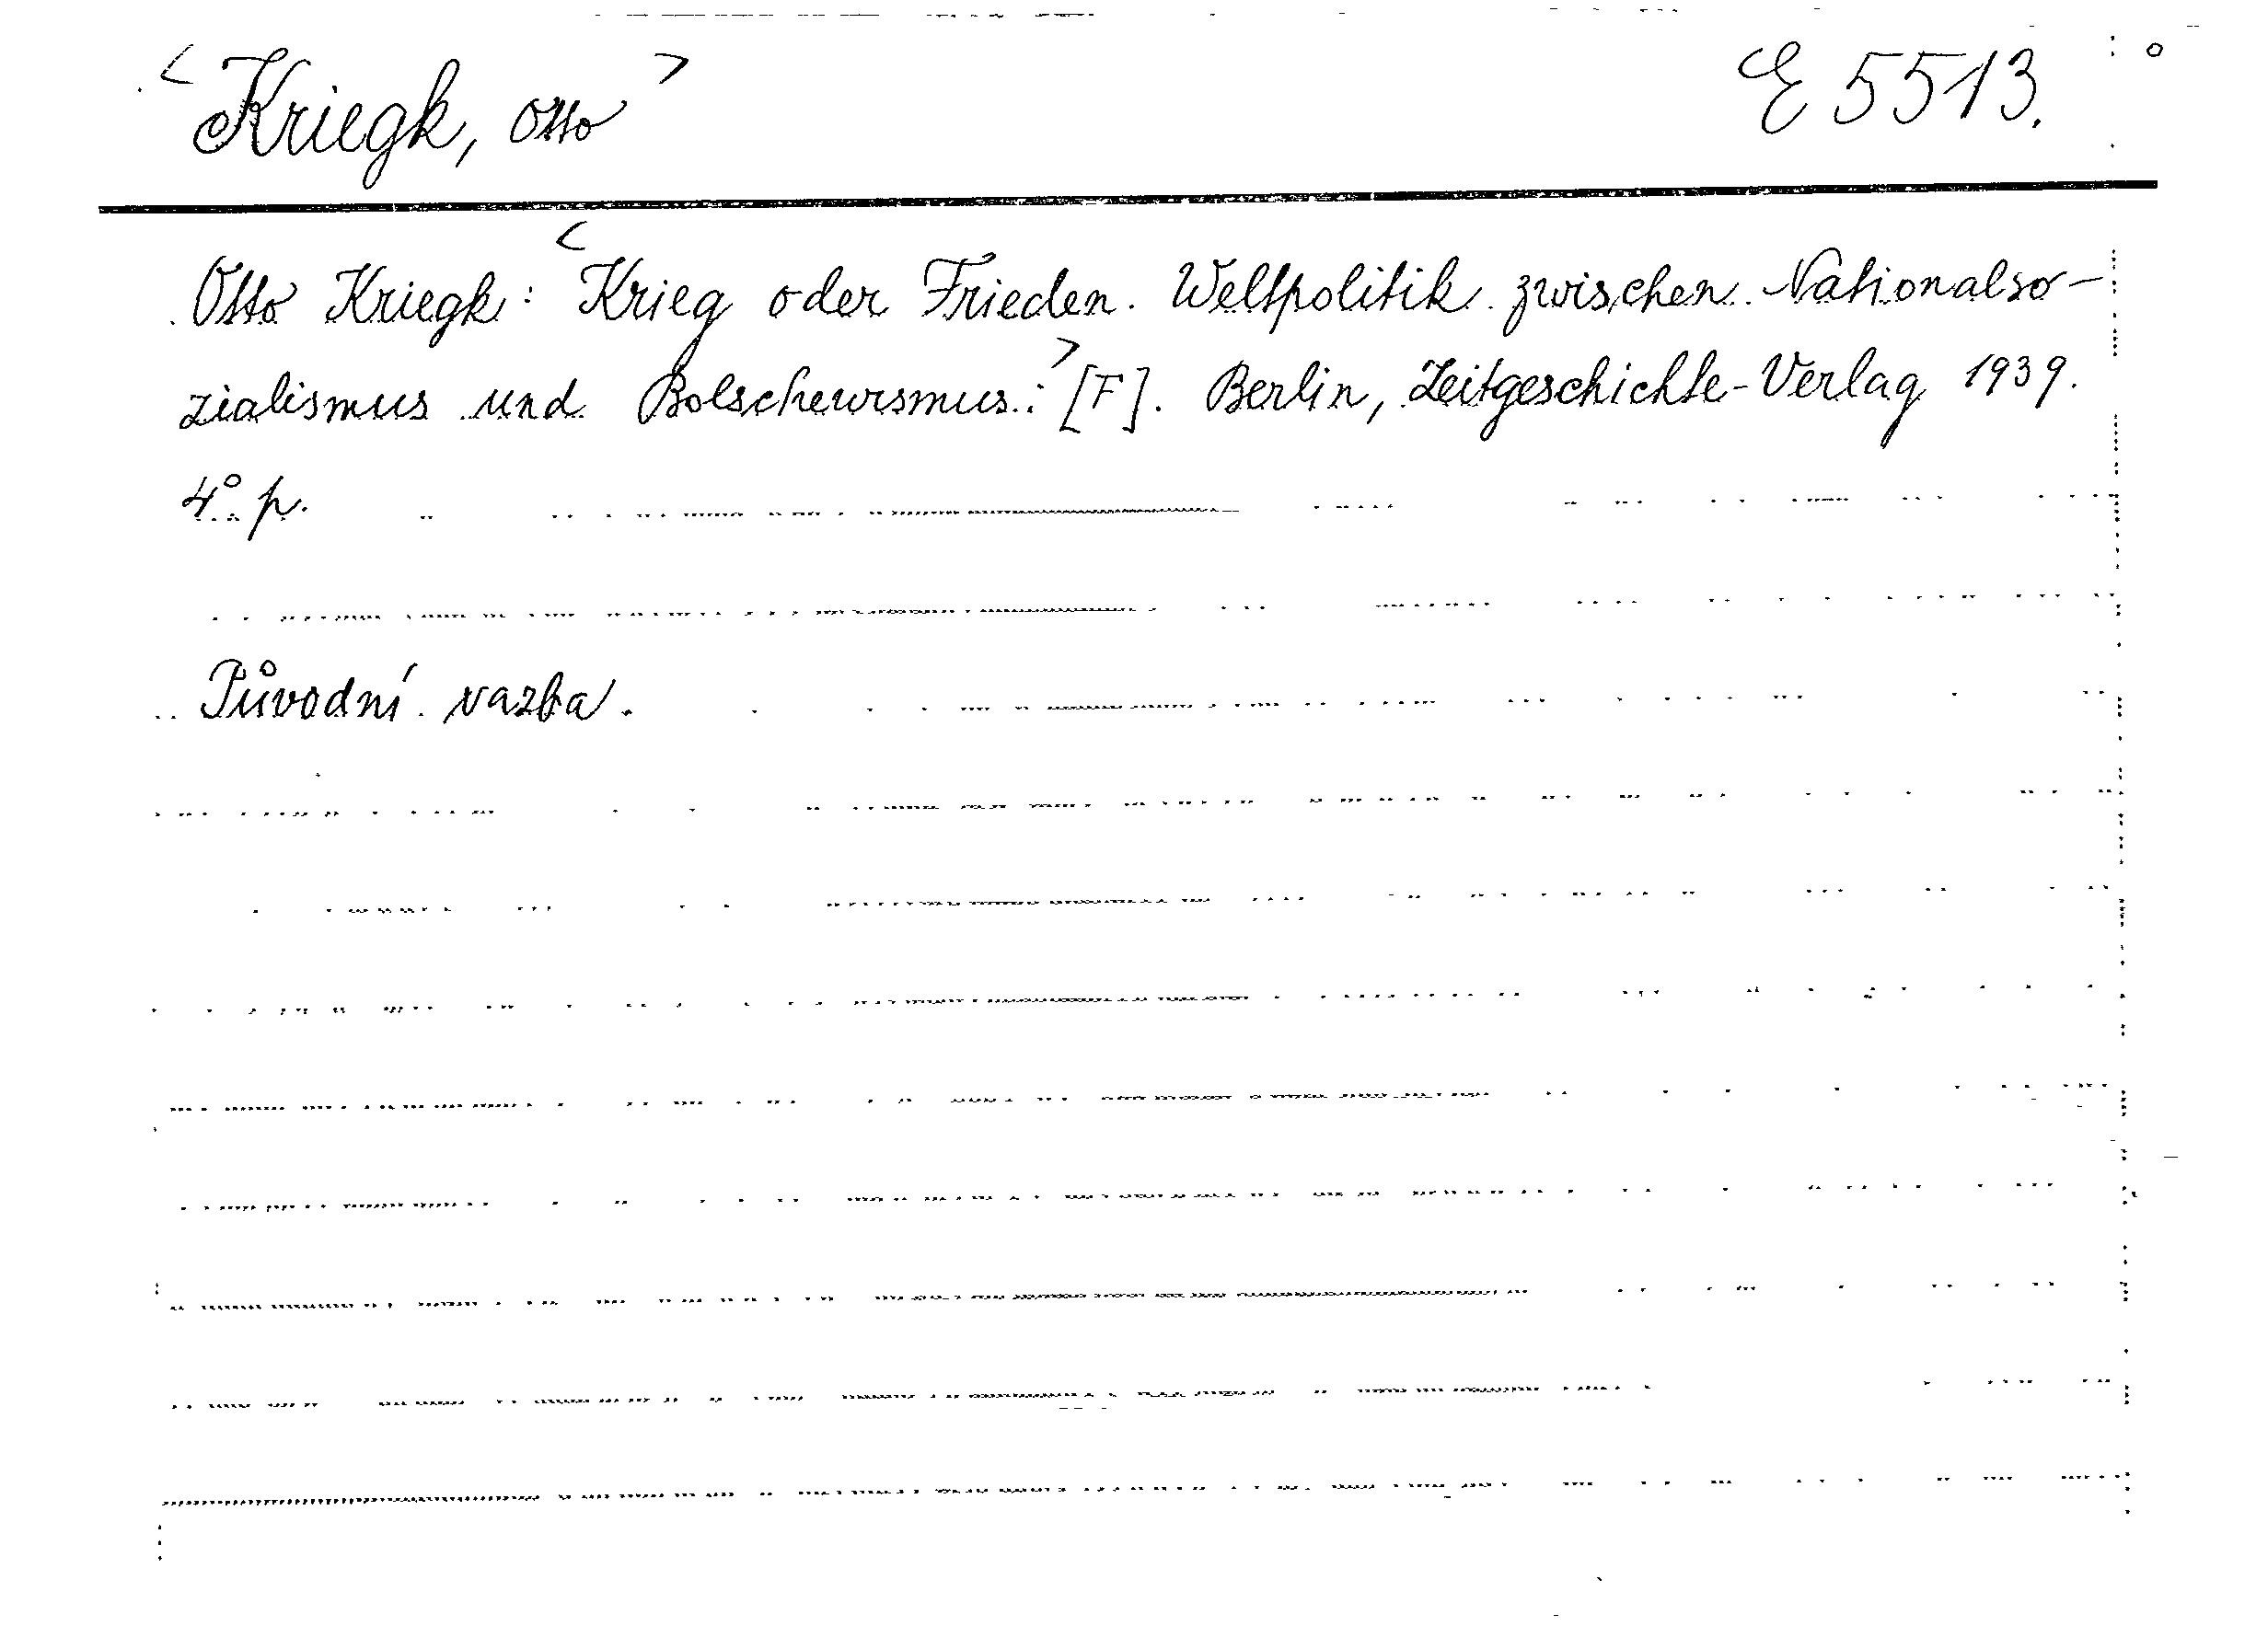 <Kriegk, Otto> E 5513.
Otto Kriegk: <Krieg oder Frieden. Weltpolitik zwischen Nationalso-
zialismus und Bolschewismus.> [F]. Berlin, Zeitgeschichte-Verlag 1939.
4° p.
Původní vazba.